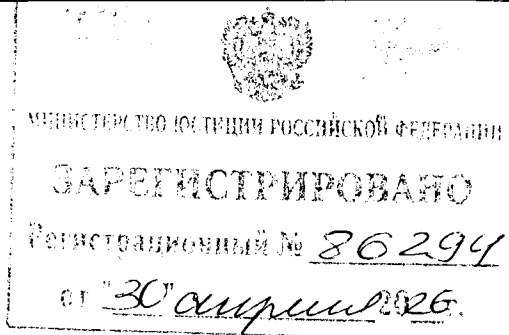 МИНИСТЕРСТВО ЮСТИЦИИ РОССИЙСКОЙ ФЕДЕРАЦИИ
ЗАРЕГИСТРИРОВАНО
Регистрационный № 86294
от "30" апреля 2026.